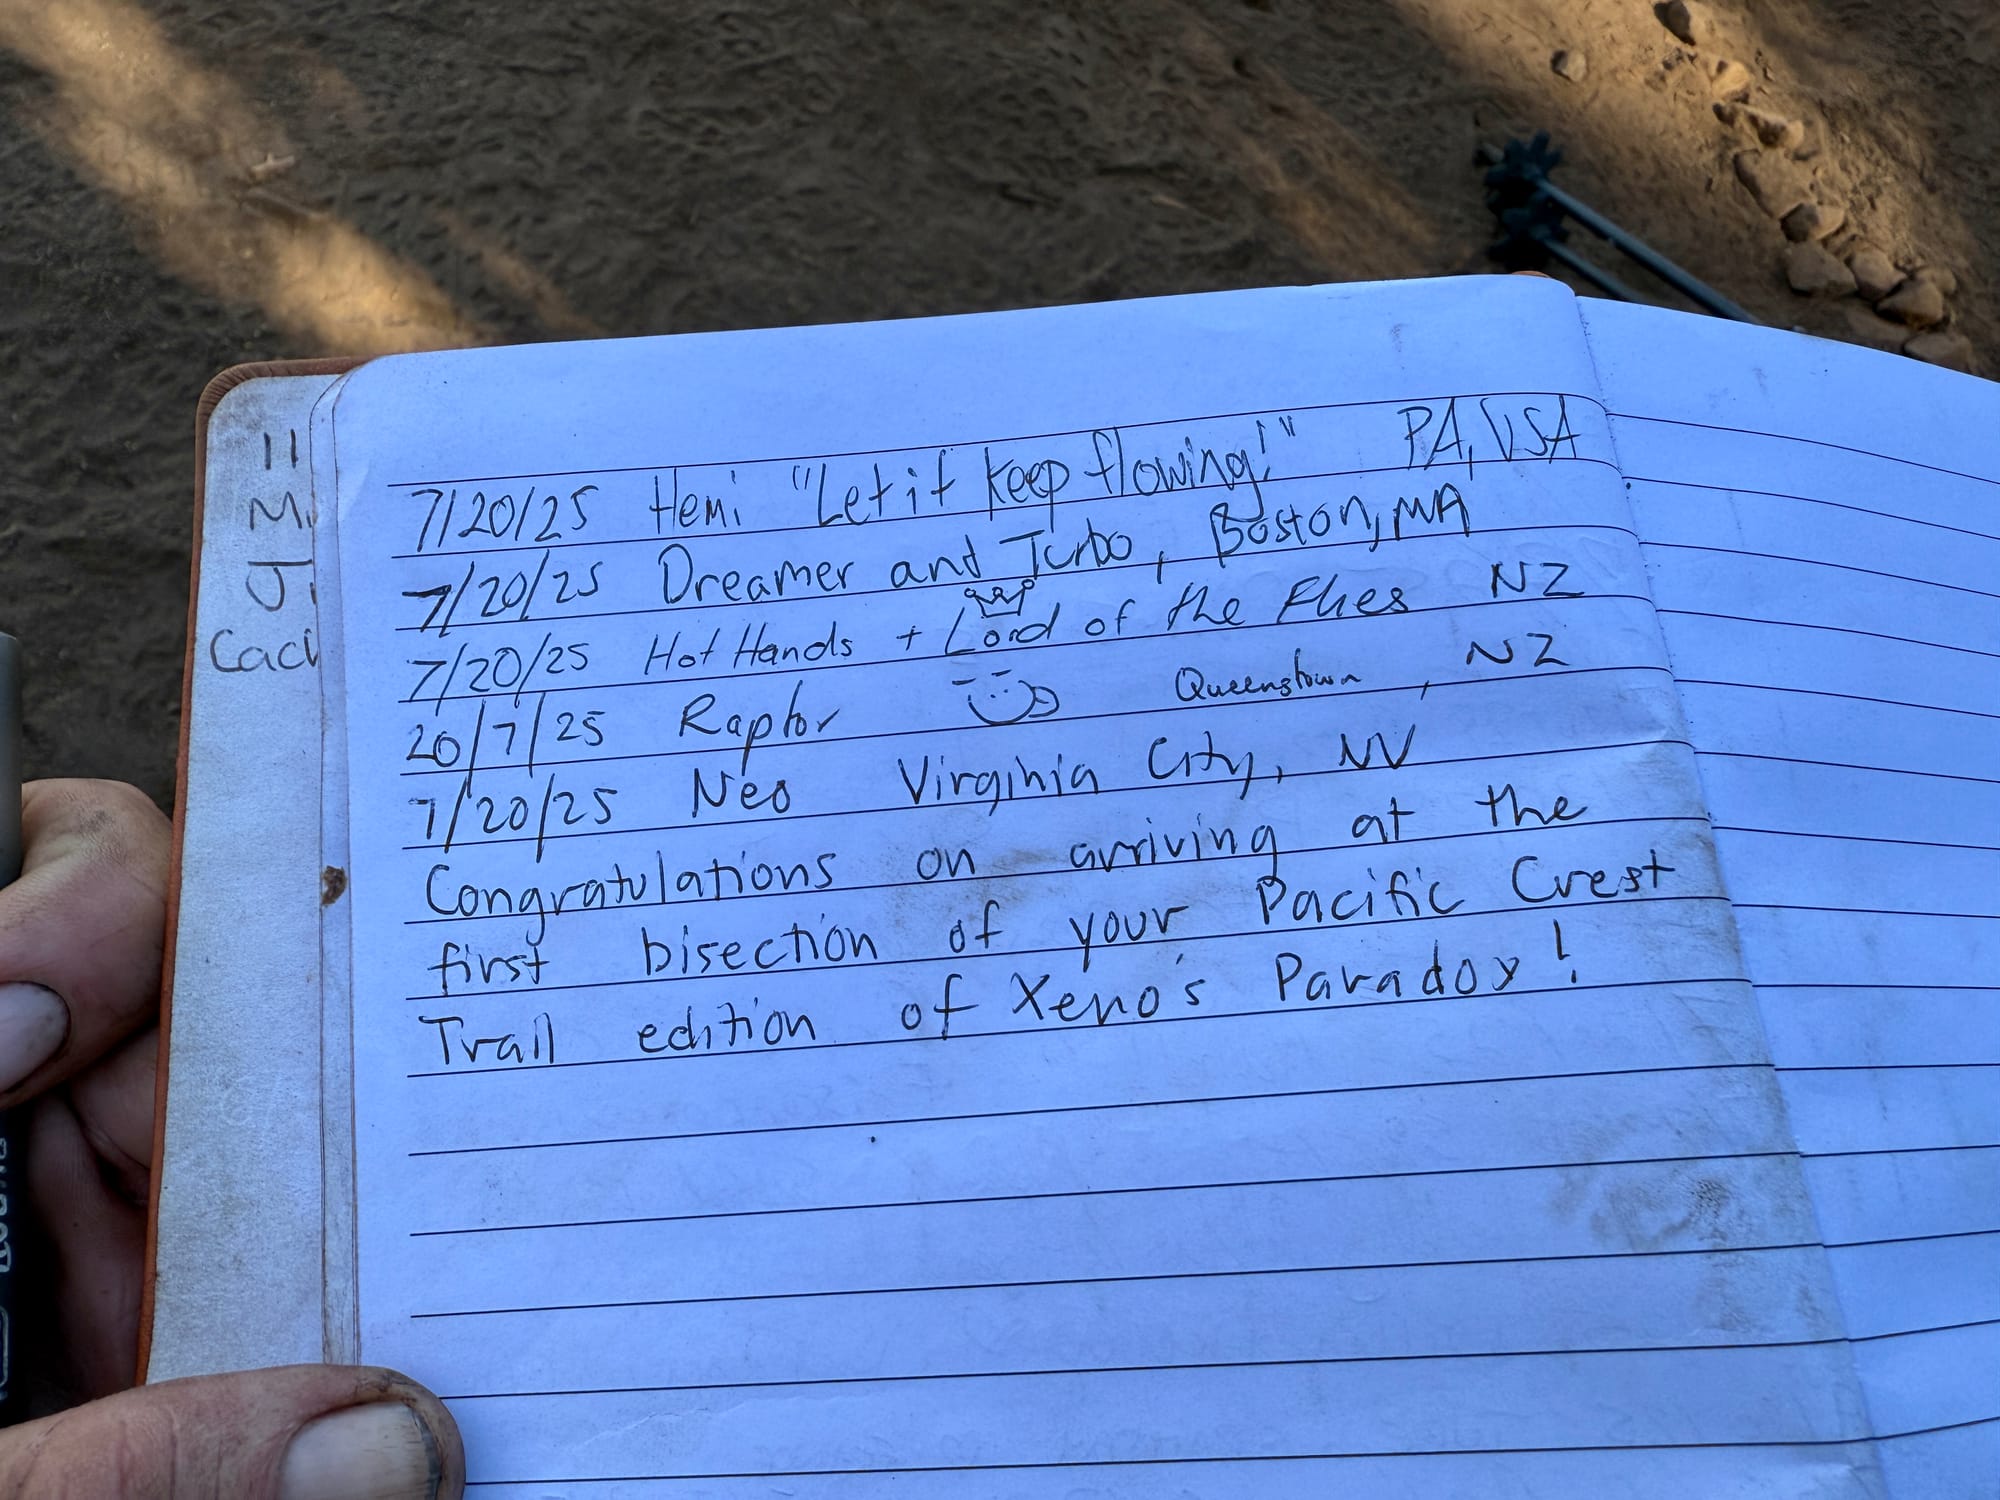 7/20/25 Hemi "Let it keep flowing!" PA, USA
7/20/25 Dreamer and Turbo, Boston, MA
7/20/25 Hot Hands + Lord of the Flies NZ
20/7/25 Raptor Queenstown, NZ
7/20/25 Neo Virginia City, NV
Congratulations on arriving at the
first bisection of your Pacific Crest
Trail edition of Xeno's Paradox!